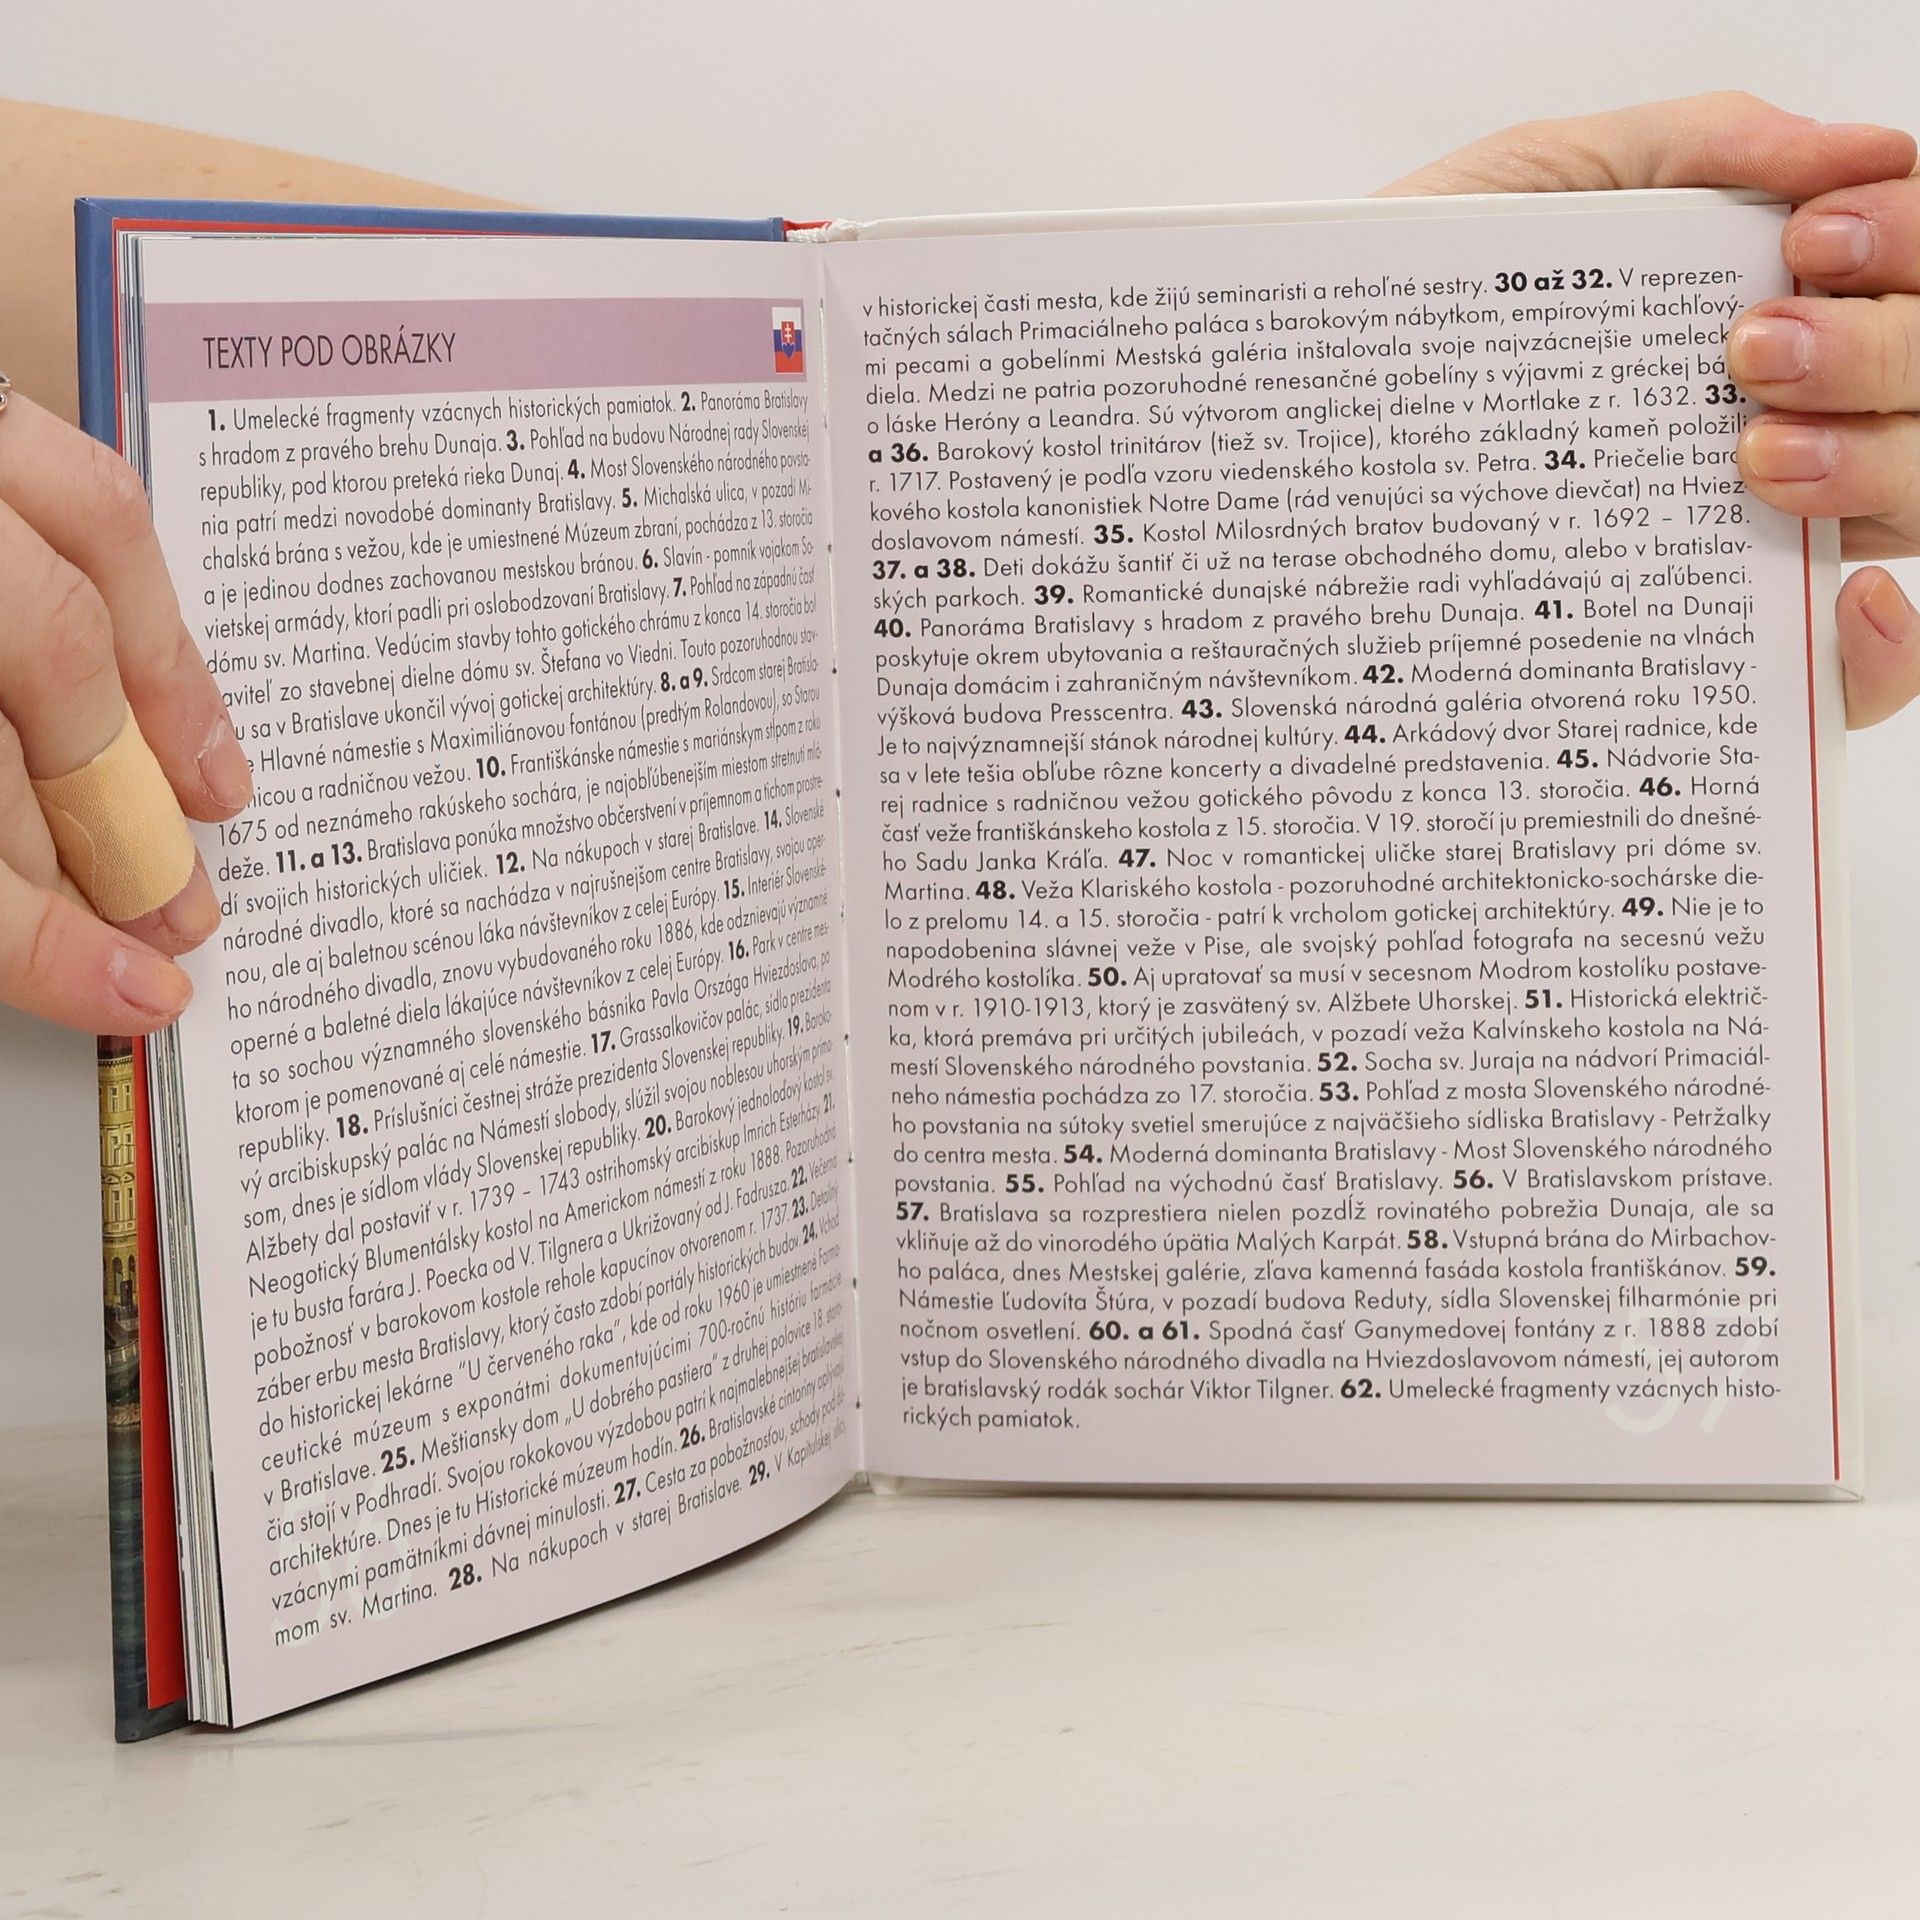 TEXTY POD OBRÁZKY
1. Umelecké fragmenty vzácnych historických pamiatok. 2. Panoráma Bratislavy
s hradom z pravého brehu Dunaja. 3. Pohľad na budovu Národnej rady Slovenskej
republiky, pod ktorou preteká rieka Dunaj. 4. Most Slovenského národného povsta-
nia patrí medzi novodobé dominanty Bratislavy. 5. Michalská ulica, v pozadí Mi-
chalská brána s vežou, kde je umiestnené Múzeum zbraní, pochádza z 13. storočia
a je jedinou dodnes zachovanou mestskou bránou. 6. Slavín - pomník vojakom So-
vietskej armády, ktorí padli pri oslobodzovaní Bratislavy. 7. Pohľad na západnú časť
dómu sv. Martina. Vedúcim stavby tohto gotického chrámu z konca 14. storočia bol
aviteľ zo stavebnej dielne dómu sv. Štefana vo Viedni. Touto pozoruhodnou stav-
u sa v Bratislave ukončil vývoj gotickej architektúry. 8. a 9. Srdcom starej Bratisla-
e Hlavné námestie s Maximiliánovou fontánou (predtým Rolandovou), so Starou
nicou a radničnou vežou. 10. Františkánske námestie s mariánskym stĺpom z roku
1675 od neznámeho rakúskeho sochára, je najobľúbenejším miestom stretnutí mlá-
deže. 11. a 13. Bratislava ponúka množstvo občerstvení v príjemnom a tichom prostre-
dí svojich historických uličiek. 12. Na nákupoch v starej Bratislave. 14. Slovenské
národné divadlo, ktoré sa nachádza v najrušnejšom centre Bratislavy, svojou oper-
nou, ale aj baletnou scénou láka návštevníkov z celej Európy. 15. Interiér Slovenské-
ho národného divadla, znovu vybudovaného roku 1886, kde odznievajú významné
operné a baletné diela lákajúce návštevníkov z celej Európy. 16. Park v centre mes-
ta so sochou významného slovenského básnika Pavla Országa Hviezdoslava, po
ktorom je pomenované aj celé námestie. 17. Grassalkovičov palác, sídlo prezidenta
republiky. 18. Príslušníci čestnej stráže prezidenta Slovenskej republiky. 19. Baroko-
vý arcibiskupský palác na Námestí slobody, slúžil svojou noblesou uhorským prima-
som, dnes je sídlom vlády Slovenskej republiky. 20. Barokový jednoloďový kostol sv.
Alžbety dal postaviť v r. 1739 – 1743 ostrihomský arcibiskup Imrich Esterházy. 21.
Neogotický Blumentálsky kostol na Americkom námestí z roku 1888. Pozoruhodná
je tu busta farára J. Poecka od V. Tilgnera a Ukrižovaný od J. Fadrusza. 22. Večerná
pobožnosť v barokovom kostole rehole kapucínov otvorenom r. 1737. 23. Detailný
záber erbu mesta Bratislavy, ktorý často zdobí portály historických budov. 24. Vchod
do historickej lekárne "U červeného raka", kde od roku 1960 je umiestnené Farma-
ceutické múzeum s exponátmi dokumentujúcimi 700-ročnú históriu farmácie
v Bratislave. 25. Meštiansky dom „U dobrého pastiera" z druhej polovice 18. storo-
čia stojí v Podhradí. Svojou rokokovou výzdobou patrí k najmalebnejšej bratislavskej
architektúre. Dnes je tu Historické múzeum hodín. 26. Bratislavské cintoríny oplývajú
vzácnymi pamätníkmi dávnej minulosti. 27. Cesta za pobožnosťou, schody pod dó-
mom sv. Martina. 28. Na nákupoch v starej Bratislave. 29. V Kapitulskej ulici,
v historickej časti mesta, kde žijú seminaristi a rehoľné sestry. 30 až 32. V reprezen-
tačných sálach Primaciálneho paláca s barokovým nábytkom, empírovými kachľový-
mi pecami a gobelínmi Mestská galéria inštalovala svoje najvzácnejšie umeleck
diela. Medzi ne patria pozoruhodné renesančné gobelíny s výjavmi z gréckej báj
o láske Heróny a Leandra. Sú výtvorom anglickej dielne v Mortlake z r. 1632. 33.
a 36. Barokový kostol trinitárov (tiež sv. Trojice), ktorého základný kameň položili
r. 1717. Postavený je podľa vzoru viedenského kostola sv. Petra. 34. Priečelie baro
kového kostola kanonistiek Notre Dame (rád venujúci sa výchove dievčat) na Hviez-
doslavovom námestí. 35. Kostol Milosrdných bratov budovaný v r. 1692 – 1728.
37. a 38. Deti dokážu šantiť či už na terase obchodného domu, alebo v bratislav-
ských parkoch. 39. Romantické dunajské nábrežie radi vyhľadávajú aj zaľúbenci.
40. Panoráma Bratislavy s hradom z pravého brehu Dunaja. 41. Botel na Dunaji
poskytuje okrem ubytovania a reštauračných služieb príjemné posedenie na vlnách
Dunaja domácim i zahraničným návštevníkom. 42. Moderná dominanta Bratislavy -
výšková budova Presscentra. 43. Slovenská národná galéria otvorená roku 1950.
Je to najvýznamnejší stánok národnej kultúry. 44. Arkádový dvor Starej radnice, kde
sa v lete tešia obľube rôzne koncerty a divadelné predstavenia. 45. Nádvorie Sta-
rej radnice s radničnou vežou gotického pôvodu z konca 13. storočia. 46. Horná
časť veže františkánskeho kostola z 15. storočia. V 19. storočí ju premiestnili do dnešné-
ho Sadu Janka Kráľa. 47. Noc v romantickej uličke starej Bratislavy pri dóme sv.
Martina. 48. Veža Klariského kostola - pozoruhodné architektonicko-sochárske die-
lo z prelomu 14. a 15. storočia - patrí k vrcholom gotickej architektúry. 49. Nie je to
napodobenina slávnej veže v Pise, ale svojský pohľad fotografa na secesnú vežu
Modrého kostolíka. 50. Aj upratovať sa musí v secesnom Modrom kostolíku postave-
nom v r. 1910-1913, ktorý je zasvätený sv. Alžbete Uhorskej. 51. Historická električ-
ka, ktorá premáva pri určitých jubileách, v pozadí veža Kalvínskeho kostola na Ná-
mestí Slovenského národného povstania. 52. Socha sv. Juraja na nádvorí Primaciál-
neho námestia pochádza zo 17. storočia. 53. Pohľad z mosta Slovenského národné-
ho povstania na sútoky svetiel smerujúce z najväčšieho sídliska Bratislavy - Petržalky
do centra mesta. 54. Moderná dominanta Bratislavy - Most Slovenského národného
povstania. 55. Pohľad na východnú časť Bratislavy. 56. V Bratislavskom prístave.
57. Bratislava sa rozprestiera nielen pozdĺž rovinatého pobrežia Dunaja, ale sa
vkliňuje až do vinorodého úpätia Malých Karpát. 58. Vstupná brána do Mirbachov-
ho paláca, dnes Mestskej galérie, zľava kamenná fasáda kostola františkánov. 59.
Námestie Ľudovíta Štúra, v pozadí budova Reduty, sídla Slovenskej filharmónie pri
nočnom osvetlení. 60. a 61. Spodná časť Ganymedovej fontány z r. 1888 zdobí
vstup do Slovenského národného divadla na Hviezdoslavovom námestí, jej autorom
je bratislavský rodák sochár Viktor Tilgner. 62. Umelecké fragmenty vzácnych histo-
rických pamiatok.
57